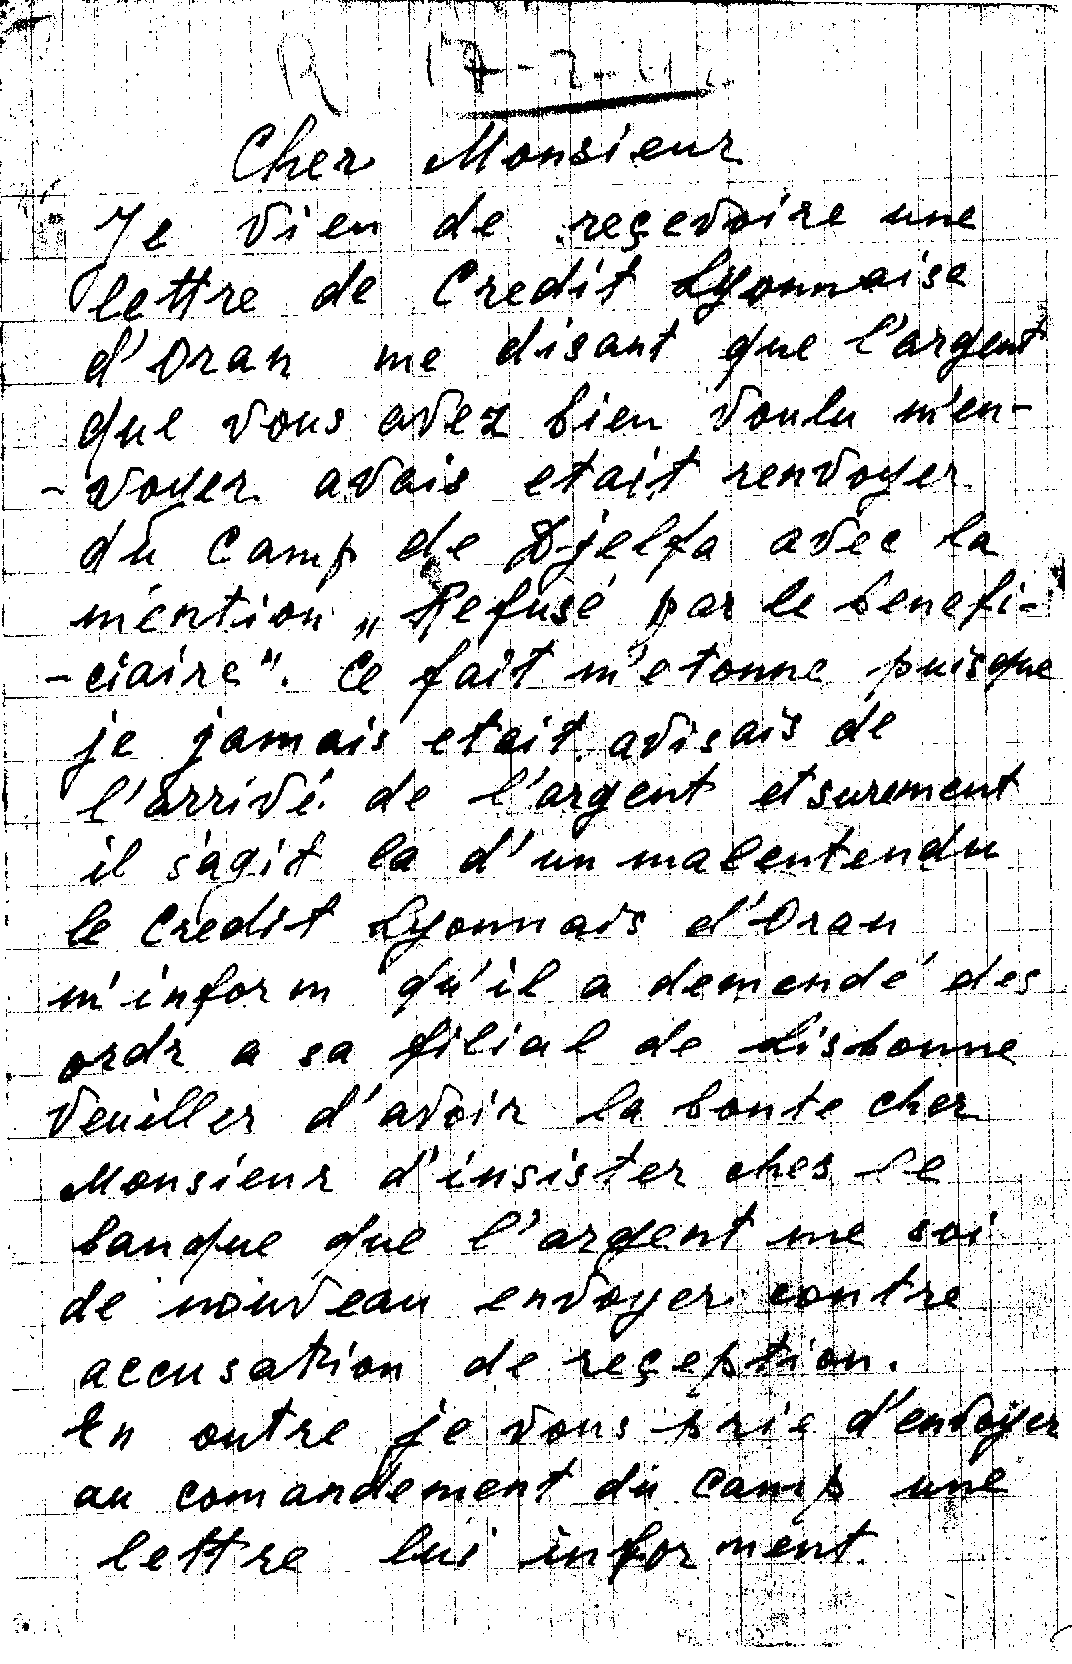 R 17-2-41.
Cher Monsieur
Je vien de reçevoire une
lettre de Credit Lyonnaise
d'Oran me disant que l'argent
que vous avez bien voulu m'en-
-voyer avais etait renvoyer
du Camp de Djelfa avec la
mention „Refusé par le benefi-
-ciaire". Ce fait m'etonne puisque
je jamais etait avisais de
l'arrivé de l'argent et surement
il s'agit la d'un malentendu
le Credit Lyonnais d'Oran
m'inform qu'il a demendé des
ordr a sa filial de Lisbonne
Veuiller d'avoir la bonte cher
Monsieur d'insister ches le
banque que l'argent me soi
de nouveau envoyer contre
accusation de reçeption.
En outre je vous prie d'envoyer
au comandement du Camp une
lettre lui informent